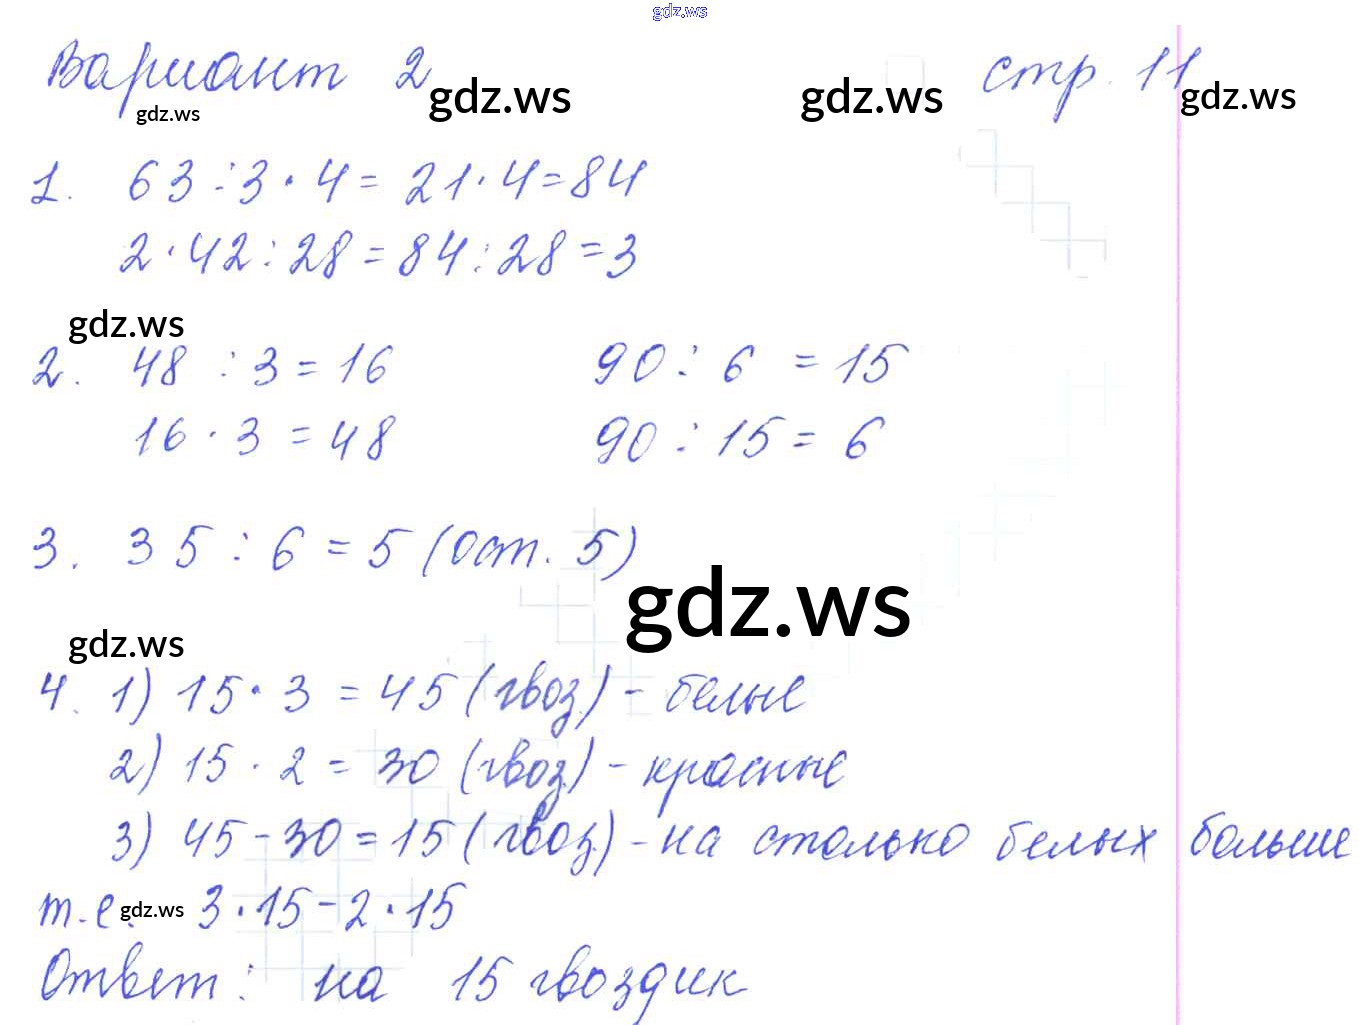 gdz.ws
Вариант 2 gdz.ws gdz.ws стр. 11 gdz.ws
gdz.ws
1. 63 : 3 · 4 = 21 · 4 = 84
2 · 42 : 28 = 84 : 28 = 3
gdz.ws
2. 48 : 3 = 16 90 : 6 = 15
16 · 3 = 48 90 : 15 = 6
3. 35 : 6 = 5 (ост. 5)
gdz.ws
gdz.ws
4. 1) 15 · 3 = 45 (гвоз.) - белые
2) 15 · 2 = 30 (гвоз.) - красные
3) 45 - 30 = 15 (гвоз) - на столько белых больше
т.е. gdz.ws 3 · 15 - 2 · 15
Ответ: на 15 гвоздик